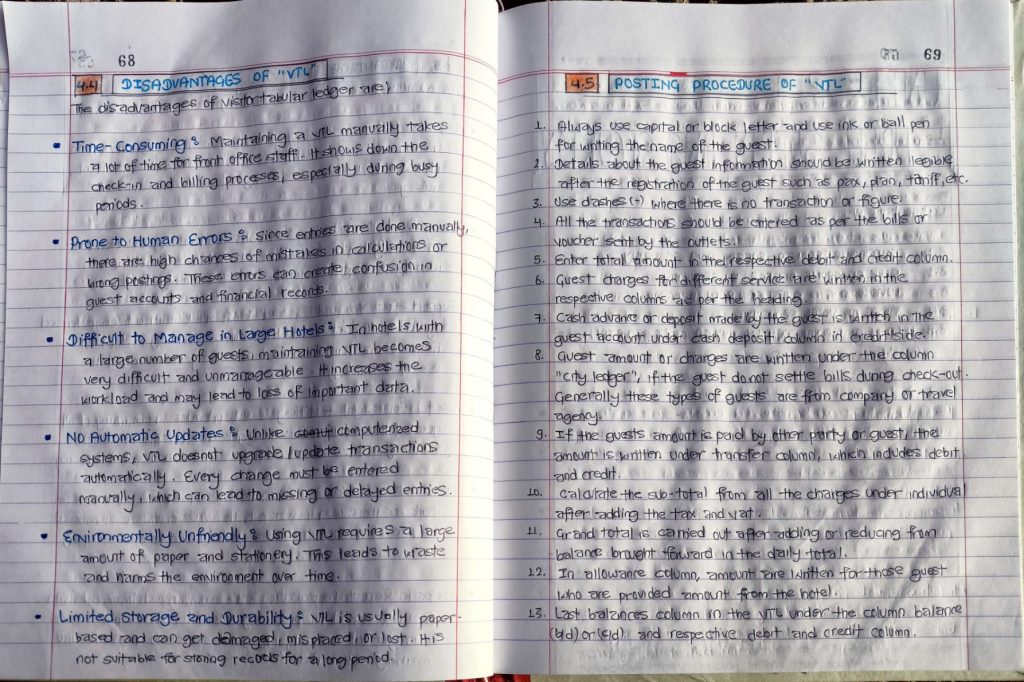 68
4.4 DISADVANTAGES OF "VTL"
The disadvantages of visitor tabular ledger are;
• Time-Consuming: Maintaining a VTL manually takes
a lot of time for front office staff. It shows down the
check-in and billing processes, especially during busy
periods.
• Prone to Human Errors: Since entries are done manually,
there are high chances of mistakes in calculations or
wrong postings. These errors can create confusion in
guest accounts and financial records.
• Difficult to Manage in Large Hotels: In hotels with
a large number of guests, maintaining VTL becomes
very difficult and unmanageable. It increases the
workload and may lead to loss of important data.
• No Automatic Updates: Unlike computerized
systems, VTL doesnot upgrade/update transactions
automatically. Every change must be entered
manually, which can lead to missing or delayed entries.
• Environmentally Unfriendly: Using VTL requires a large
amount of paper and stationery. This leads to waste
and harms the environment over time.
• Limited Storage and Durability: VTL is usually paper-
based and can get damaged, misplaced, or lost. It is
not suitable for storing records for a long period.
69
4.5 POSTING PROCEDURE OF "VTL"
1. Always use capital or block letter and use ink or ball pen
for writing the name of the guest.
2. Details about the guest information should be written legible
after the registration of the guest such as pax, plan, tariff, etc.
3. Use dashes (-) where there is no transaction or figure.
4. All the transactions should be entered as per the bills or
voucher sent by the outlets.
5. Enter total amount in the respective debit and credit column.
6. Guest charges for different service are written in the
respective columns as per the heading.
7. Cash advance or deposit made by the guest is written in the
guest account under cash deposit column in credit side.
8. Guest amount or charges are written under the column
"city ledger", if the guest do not settle bills during check-out.
Generally these types of guests are from company or travel
agency.
9. If the guests amount is paid by other party or guest, the
amount is written under transfer column, which includes debit
and credit.
10. Calculate the sub-total from all the charges under individual
after adding the tax and vat.
11. Grand total is carried out after adding or reducing from
balance brought forward in the daily total.
12. In allowance column, amount are written for those guest
who are provided amount from the hotel.
13. Last balances column in the VTL under the column balance
(b/d) or (c/d) and respective debit and credit column.